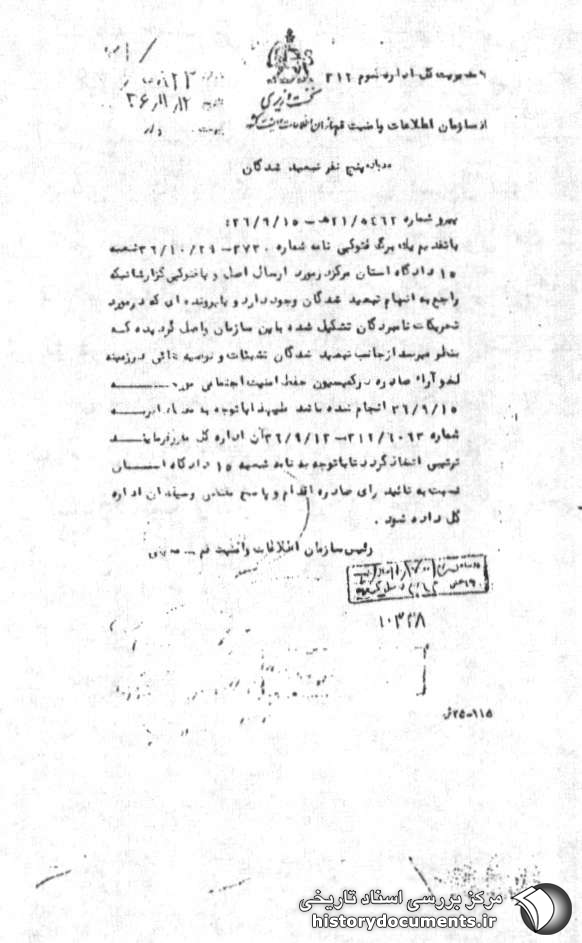 بمدیریت کل اداره سوم ۳۱۲
نخست وزیری
۳۶/۱۱/۱۲
دارد
از سازمان اطلاعات و امنیت قم سازمان اطلاعات و امنیت کشور
درباره پنج نفر تبعید شدگان
پیرو شماره ۲۱/۵۴۶۲هـ - ۳۶/۹/۱۵:
باتقدیم یک برگ فتوکپی نامه شماره ۲۷۳۰-۳۶/۱۰/۲۹ شعبه
۱۵ دادگاه استان مرکز درمورد ارسال اصل و یا فتوکپی گزارشاتیکه
راجع به اتهام تبعید شدگان وجود دارد و یا پرونده ای که درمورد
تحریکات نامبردگان تشکیل شده باین سازمان واصل گردیده که
بنظر میرسد از جانب تبعید شدگان تشبثات و توصیه هائی درزمینه
لغو آراء صادره در کمیسیون حفظ امنیت اجتماعی مورخه
۳۶/۹/۱۵ انجام شده باشد علیهذا باتوجه به مفاد امریه
شماره ۳۱۲/۶۰۶۳-۳۶/۹/۱۲ آن اداره کل مقرر فرمایند
ترتیبی اتخاذ گردد تا باتوجه به نامه شعبه ۱۵ دادگاه استان
نسبت به تائید رای صادره اقدام و پاسخ مقتضی وسیله آن اداره
کل داده شود.
رئیس سازمان اطلاعات و امنیت قم
۱۰۳۳۸
۲۵-۱۱۵ش
مرکز بررسی اسناد تاریخی
historydocuments.ir